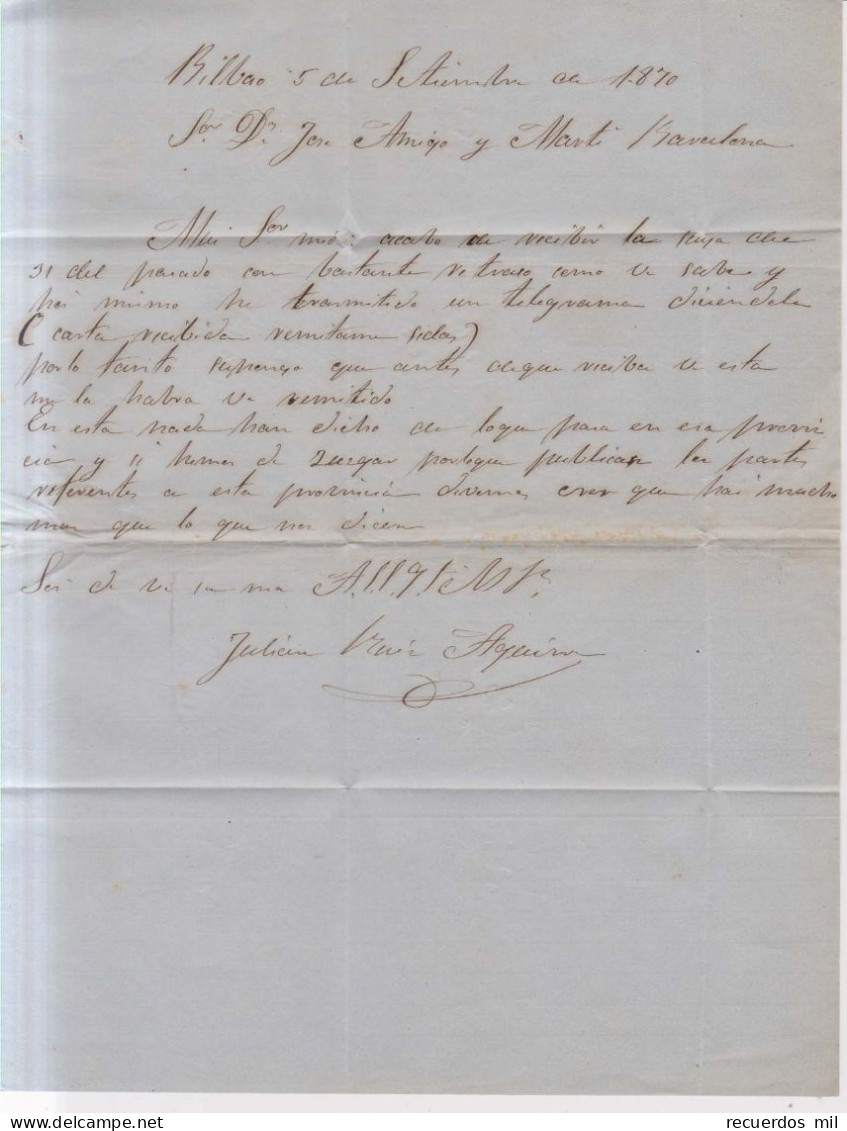 Bilbao 5 de Setiembre de 1870
Sor Dn Jose Amigo y Marti Barcelona
Mui Sor mio: acabo de recibir la suya de
31 del pasado con bastante retraso, como V sabe y
hoi mismo he trasmitido un telegrama diciendole
(carta recibida remitame sedas)
porlo tanto supongo que antes deque reciba V esta
me la habra V remitido
En esta nada han dicho de loque pasa en esa provin
cia y si hemos de Zuzgar porloque publican los partes
referentes a esta provincia devemos creer que hai mucho
mas que lo que nos dicen
Soi de V
Julian Ruiz Aguirre
recuerdos mil